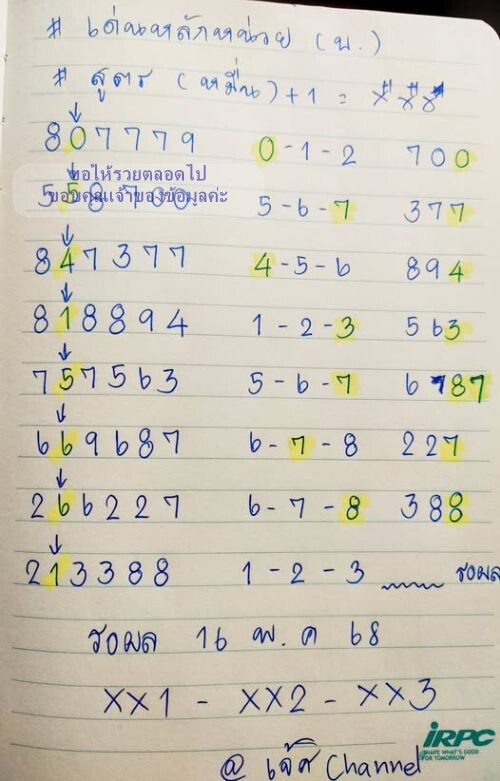 # เด่นหลักหน่วย (บ.)
# สูตร (หมื่น) + 1 = X X X
807779 0-1-2 700
ขอให้รวยตลอดไป
558700 5-6-7 377
ขอบคุณเจ้าของข้อมูลค่ะ
847377 4-5-6 894
818894 1-2-3 563
757563 5-6-7 687
669687 6-7-8 227
266227 6-7-8 388
213388 1-2-3 รอผล
รอผล 16 พ.ค 68
XX1 - XX2 - XX3
IRPC
SHAPE WHAT'S GOOD
FOR TOMORROW
@ Channel